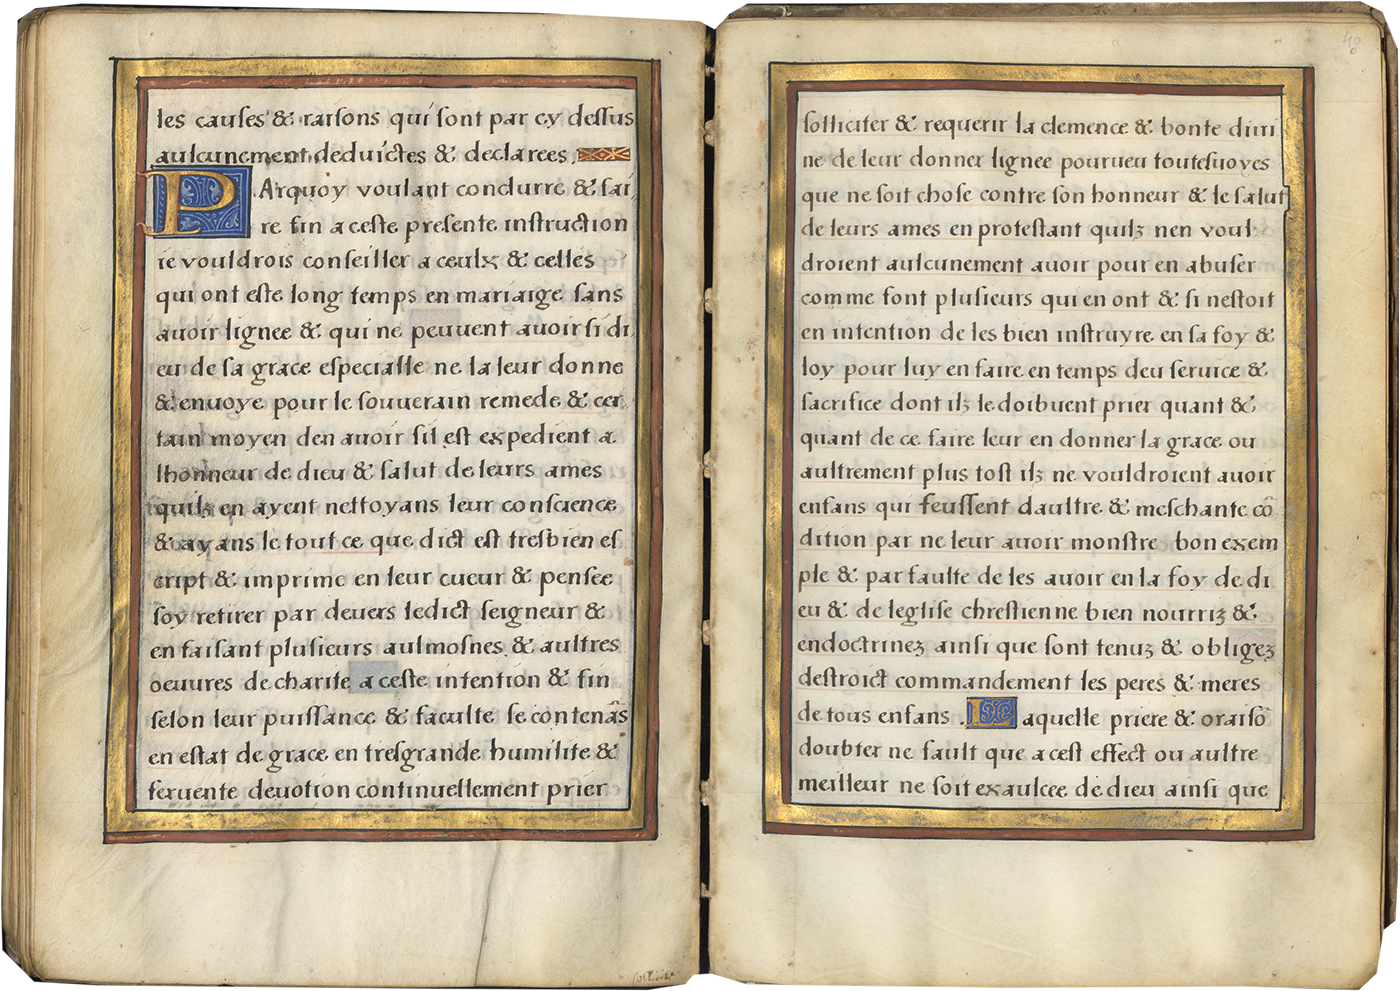 les causes & raisons qui sont par cy dessus
aulcunement deduictes & declarees.
PArquoy voulant conclurre & fai
re fin a ceste presente instruction
ie vouldrois conseiller a ceulx & celles
qui ont este long temps en mariaige sans
avoir lignee & qui ne peuvent avoir si di
eu de sa grace especialle ne la leur donne
& envoye pour le souverain remede & cer
tain moyen den avoir sil est expedient a
lhonneur de dieu & salut de leurs ames
quilz en ayent nettoyans leur conscience
& ayans le tout ce que dict est tresbien es
cript & imprime en leur cueur & pensee
soy retirer par devers ledict seigneur &
en faisant plusieurs aulmosnes & aultres
oeuures de charite a ceste intention & fin
selon leur puissance & faculte se contenãs
en estat de grace en tresgrande humilite &
feruente devotion continuellement prier
solliciter & requerir la clemence & bonte divi
ne de leur donner lignee pourueu toutesvoyes
que ne soit chose contre son honneur & le salut
de leurs ames en protestant quilz nen voul
droient aulcunement avoir pour en abuser
comme font plusieurs qui en ont & si nestoit
en intention de les bien instruyre en sa foy &
loy pour luy en faire en temps deu seruice &
sacrifice dont ilz le doibuent prier quant &
quant de ce faire leur en donner la grace ou
aultrement plus tost ilz ne vouldroient avoir
enfans qui feussent daultre & meschante cõ
dition par ne leur avoir monstre bon exem
ple & par faulte de les avoir en la foy de di
eu & de leglise chrestienne bien nourriz &
endoctrinez ainsi que sont tenuz & obligez
destroict commandement les peres & meres
de tous enfans. Laquelle priere & oraisõ
doubter ne fault que a cest effect ou aultre
meilleur ne soit exaulcee de dieu ainsi que